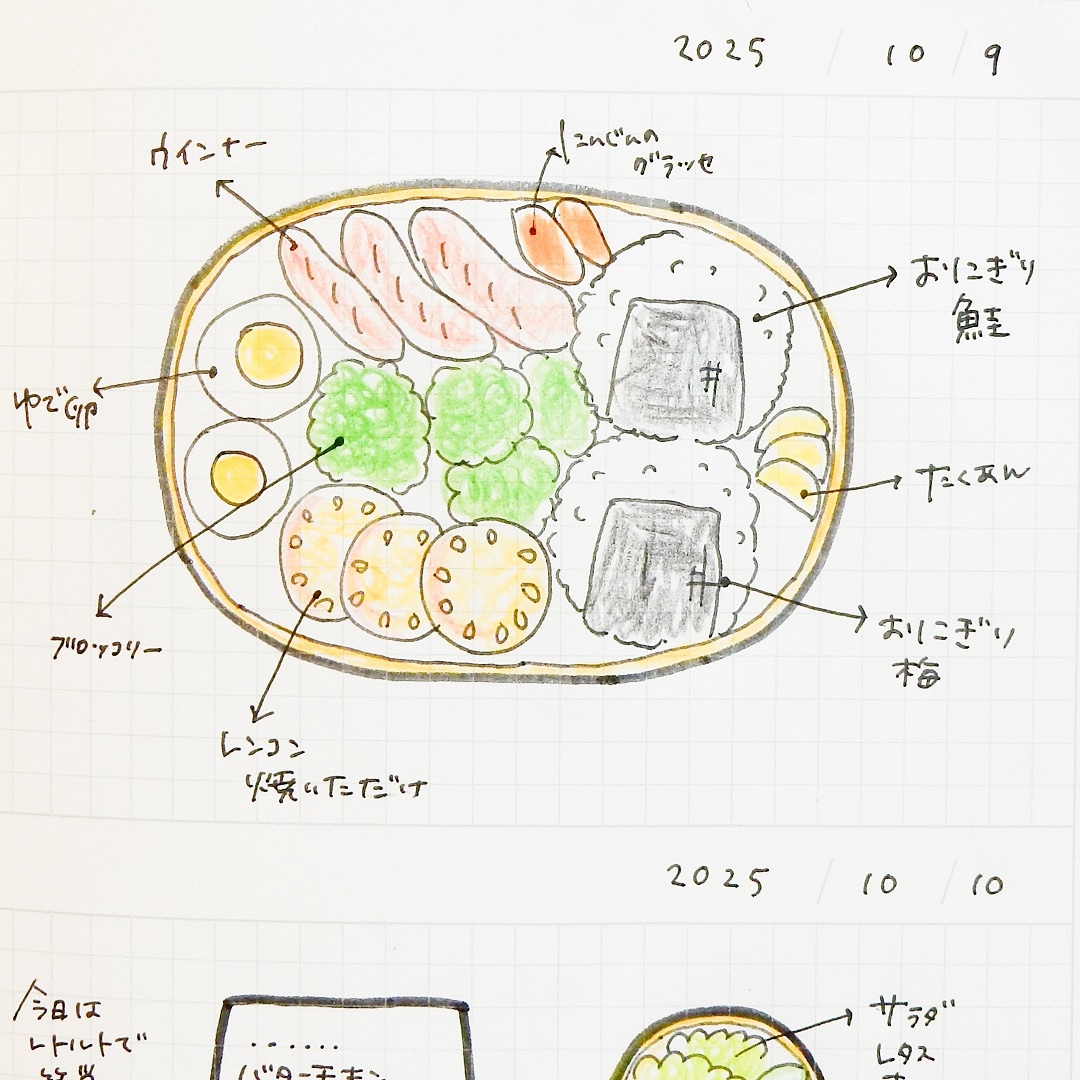 2025 / 10 / 9
ウインナー
にんじんの
グラッセ
おにぎり
鮭
ゆで卵
たくあん
おにぎり
梅
ブロッコリー
レンコン
焼いただけ
2025 / 10 / 10
今日は
レトルトで
サラダ
レタス
......
バターチキン